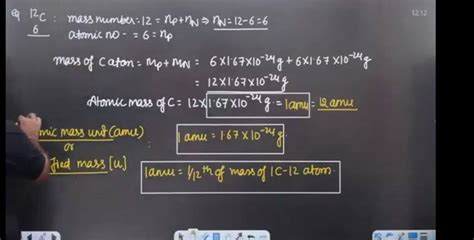 eg ¹²C : mass number = 12 = nₚ + nₙ ⇒ nₙ = 12-6 = 6
6 atomic no - = 6 = nₚ
12:12
mass of C atom = mₚ + mₙ = 6×1.67×10⁻²⁴g + 6×1.67×10⁻²⁴g
= 12×1.67×10⁻²⁴g
Atomic mass of C = 12×1.67×10⁻²⁴g = 1amu = 12 amu
mic mass unit (amu) : 1 amu = 1.67×10⁻²⁴g
or
fied mass [u] 1amu = 1/12ᵗʰ of mass of 1 C-12 atom.